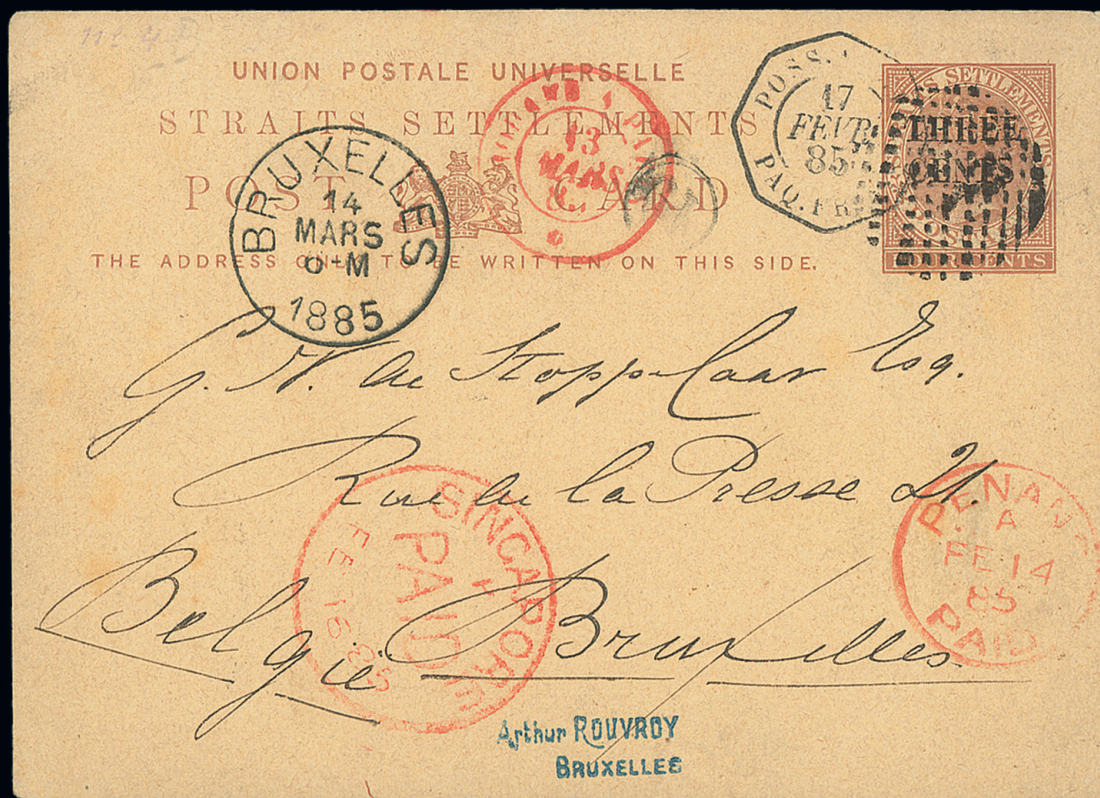 UNION POSTALE UNIVERSELLE
STRAITS SETTLEMENTS
POST CARD
THE ADDRESS ONLY TO BE WRITTEN ON THIS SIDE.
BRUXELLES
14
MARS
1885
13
MARS
POSS.
17
FEVR
85
PAQ. FR
SETTLEMENTS
THREE
CENTS
G. H. de Stoppelaar Esq.
Rue de la Presse 21.
Belgie Bruxelles
SINGAPORE
PAID
FE 16 85
PENANG
A
FE 14
85
PAID
Arthur ROUVROY
BRUXELLES